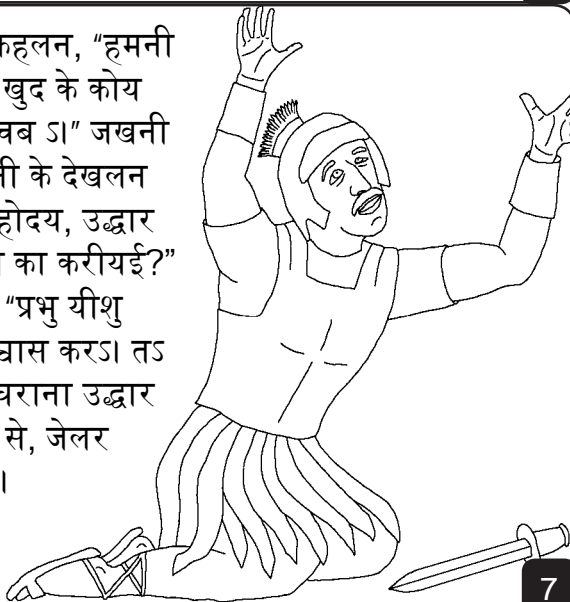 कहलन, “हमनी
खुद के कोय
ऽ।” जखनी
के देखलन
उद्धार
का करीयई?”
“प्रभु यीशु
करऽ। तऽ
घराना उद्धार
से, जेलर
।
7